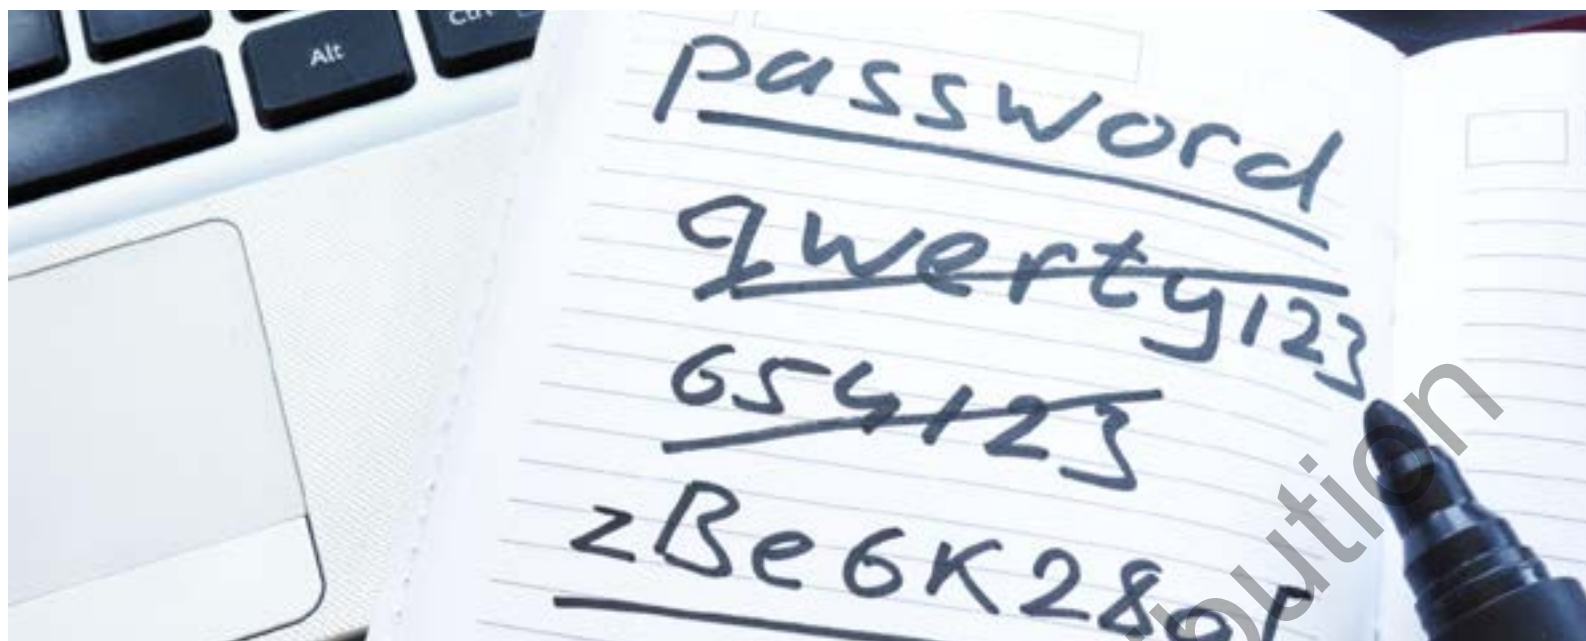 Alt
Ctrl
password
qwerty123
654123
zBe6K28or